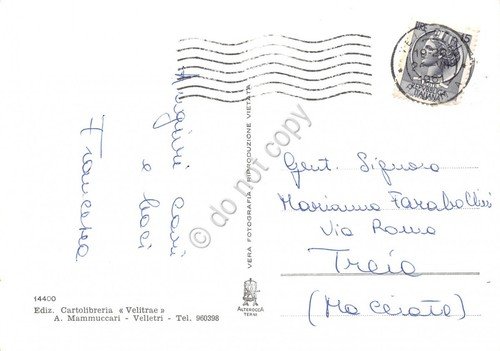 Auguri cari
e baci
Francesca
VERA FOTOGRAFIA RIPRODUZIONE VIETATA
Gent. Signora
Marianna Farabollini
Via Roma
Treia
(Macerata)
14400
Ediz. Cartolibreria « Velitrae »
A. Mammuccari - Velletri - Tel. 960398
ALTEROCCA
TERNI
© do not copy